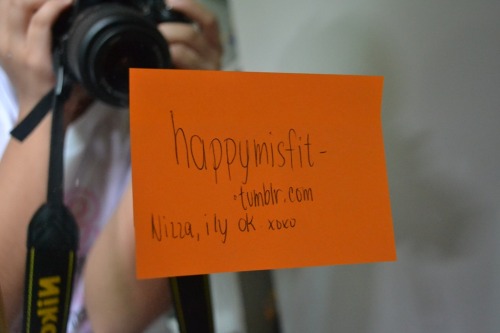 happymisfit-
.tumblr.com
Nizza, ily ok xoxo
Nikon